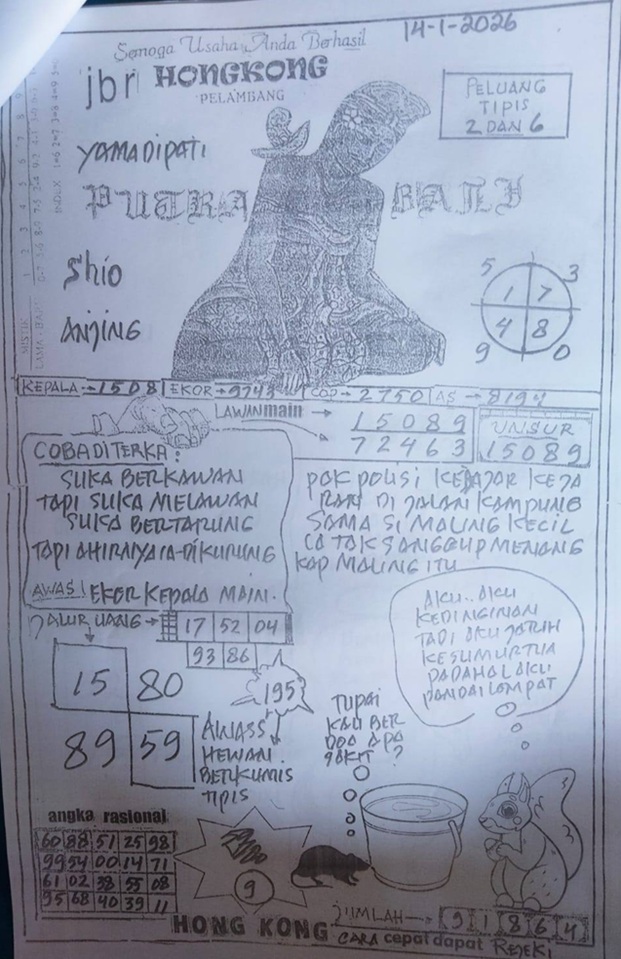 14-1-2026
Semoga Usaha Anda Berhasil
jbr HONGKONG
PELAMBANG
PELUANG
TIPIS
2 DAN 6
YAMADIPATI
PUTRA BALI
Shio
ANJING
5 3
1 7
4 8
9 0
KEPALA → 1508 EKOR → 9743 COP → 2750 AS → 8194
LAWAN main → 15089
72463
UNSUR
15089
COBA DITERKA:
SUKA BERKAWAN
TAPI SUKA MELAWAN
SUKA BERTARUNG
TAPI AHIRNYA IA DI KURUNG
AWAS! EKOR KEPALA MAIN.
PAK POLISI KEJAJAR KEJA
RAN DI JALAN KAMPUNG
SAMA SI MALING KECIL
IA TAK SANGGUP MENANG
KAP MALING ITU
JALUR UANG → 17 52 04
93 86
15 80
89 59
195
AWASS
HEWAN
BERKUMIS
TIPIS
AKU..AKU
KEDINGINAN
TADI AKU JATUH
KESUMUR TUA
PADAHAL AKU
PANDAI LOMPAT
TUPAI
KAU BER
DOA APA
SAKIT ?
angka rasional
60 88 51 25 98
99 54 00 14 71
61 02 38 55 08
95 68 40 39 11
9
JUMLAH → 9 1 8 6 4
HONG KONG CARA cepat dapat REJEKI